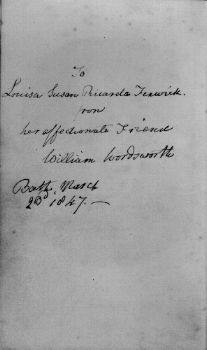 To
Louisa Susan Ricarda Fenwick.
from
her affectionate Friend
William Wordsworth
Bath, March
23d 1847.—